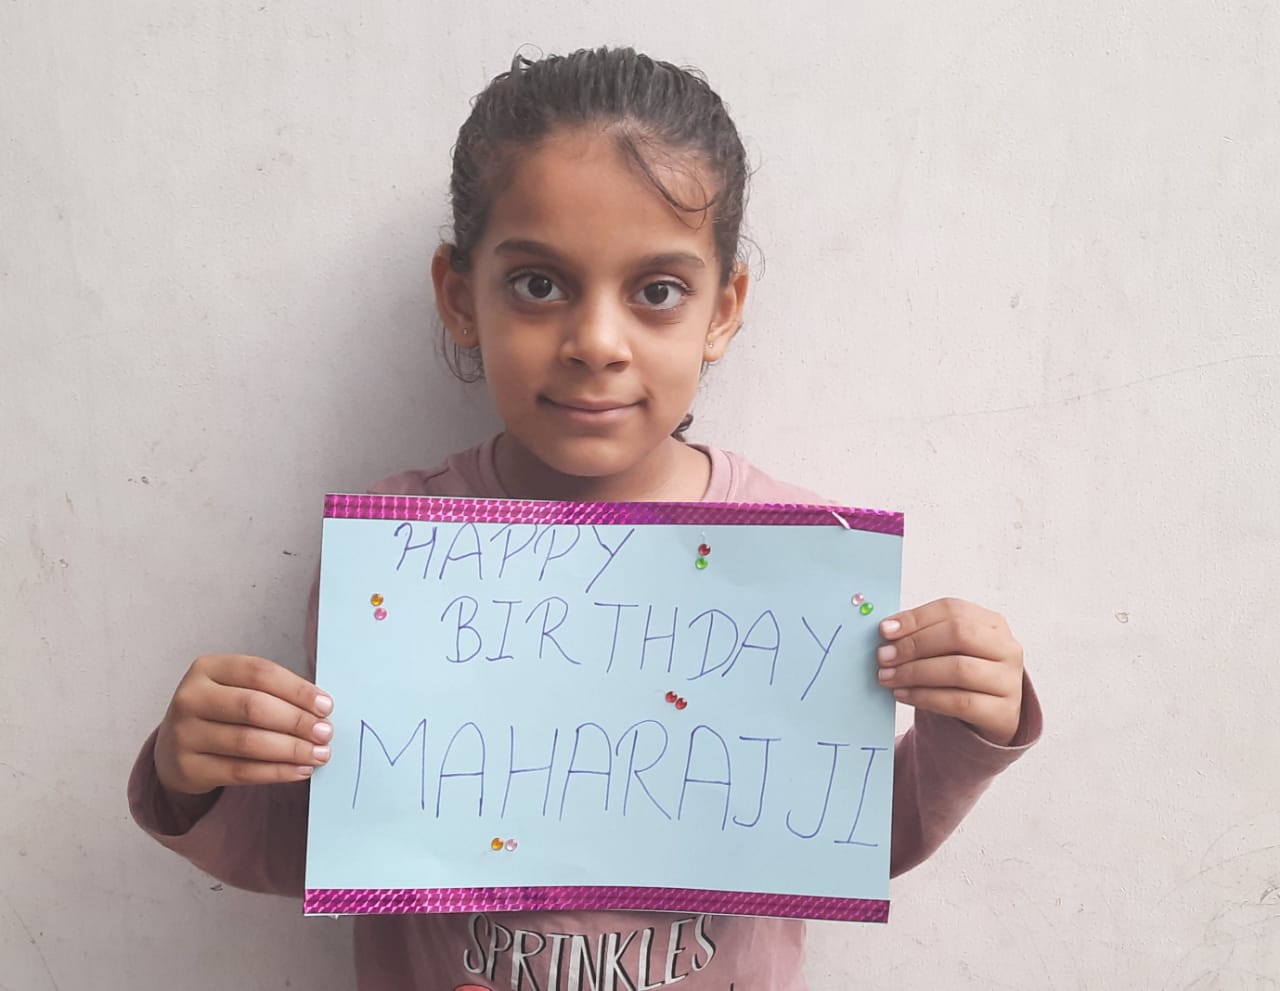 HAPPY
BIRTHDAY
MAHARAJ JI
SPRINKLES